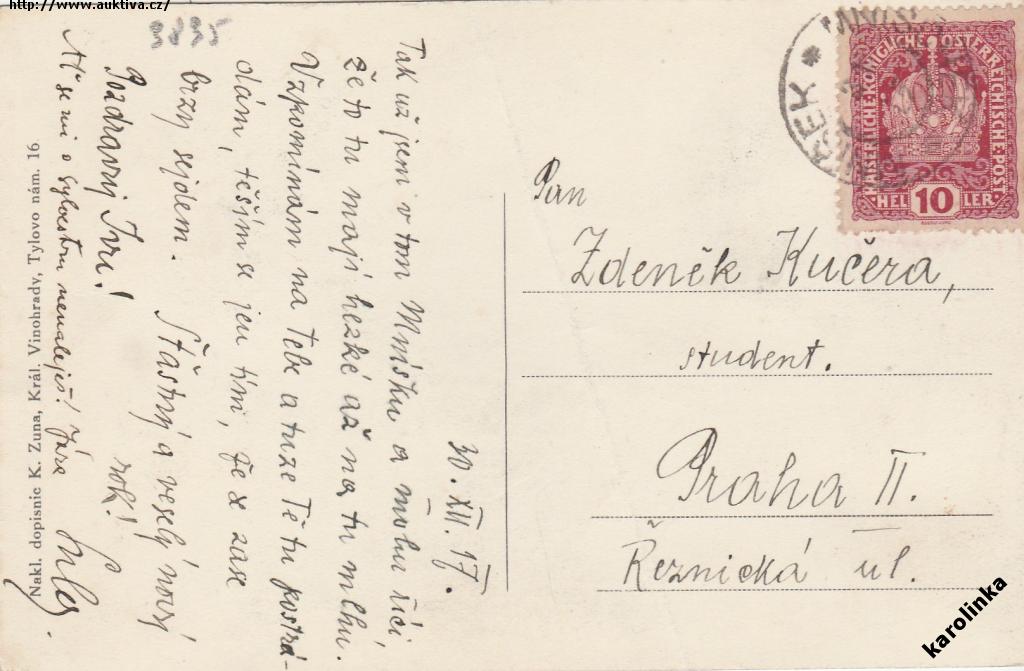 http://www.auktiva.cz/
3835
30. XII. 17.
Tak už jsem v tom Mníšku a mohu říci
že to tu mají hezké až na tu mlhu.
Vzpomínám na Tebe a tuze Tě tu postrá-
dám, těším se jen tím, že se zase
brzy sejdem. Šťastný a veselý nový
rok!
Pozdravuj
Ať se mi o Sylvestru nenaleješ! Jára
Nakl. dopisnic K. Zuna, Král. Vinohrady, Tylovo nám. 16
Pan
Zdeněk Kučera,
student.
Praha II.
Řeznická ul.
KAISERLICHE·KÖNIGLICHE·ÖSTERREICHISCHE·POST·
HEL 10 LER
karolinka